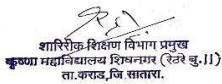 शारिरीक शिक्षण विभाग प्रमुख
कृष्णा महाविद्यालय शिवनगर (रेठरे बु.॥)
ता.कराड, जि सातारा.